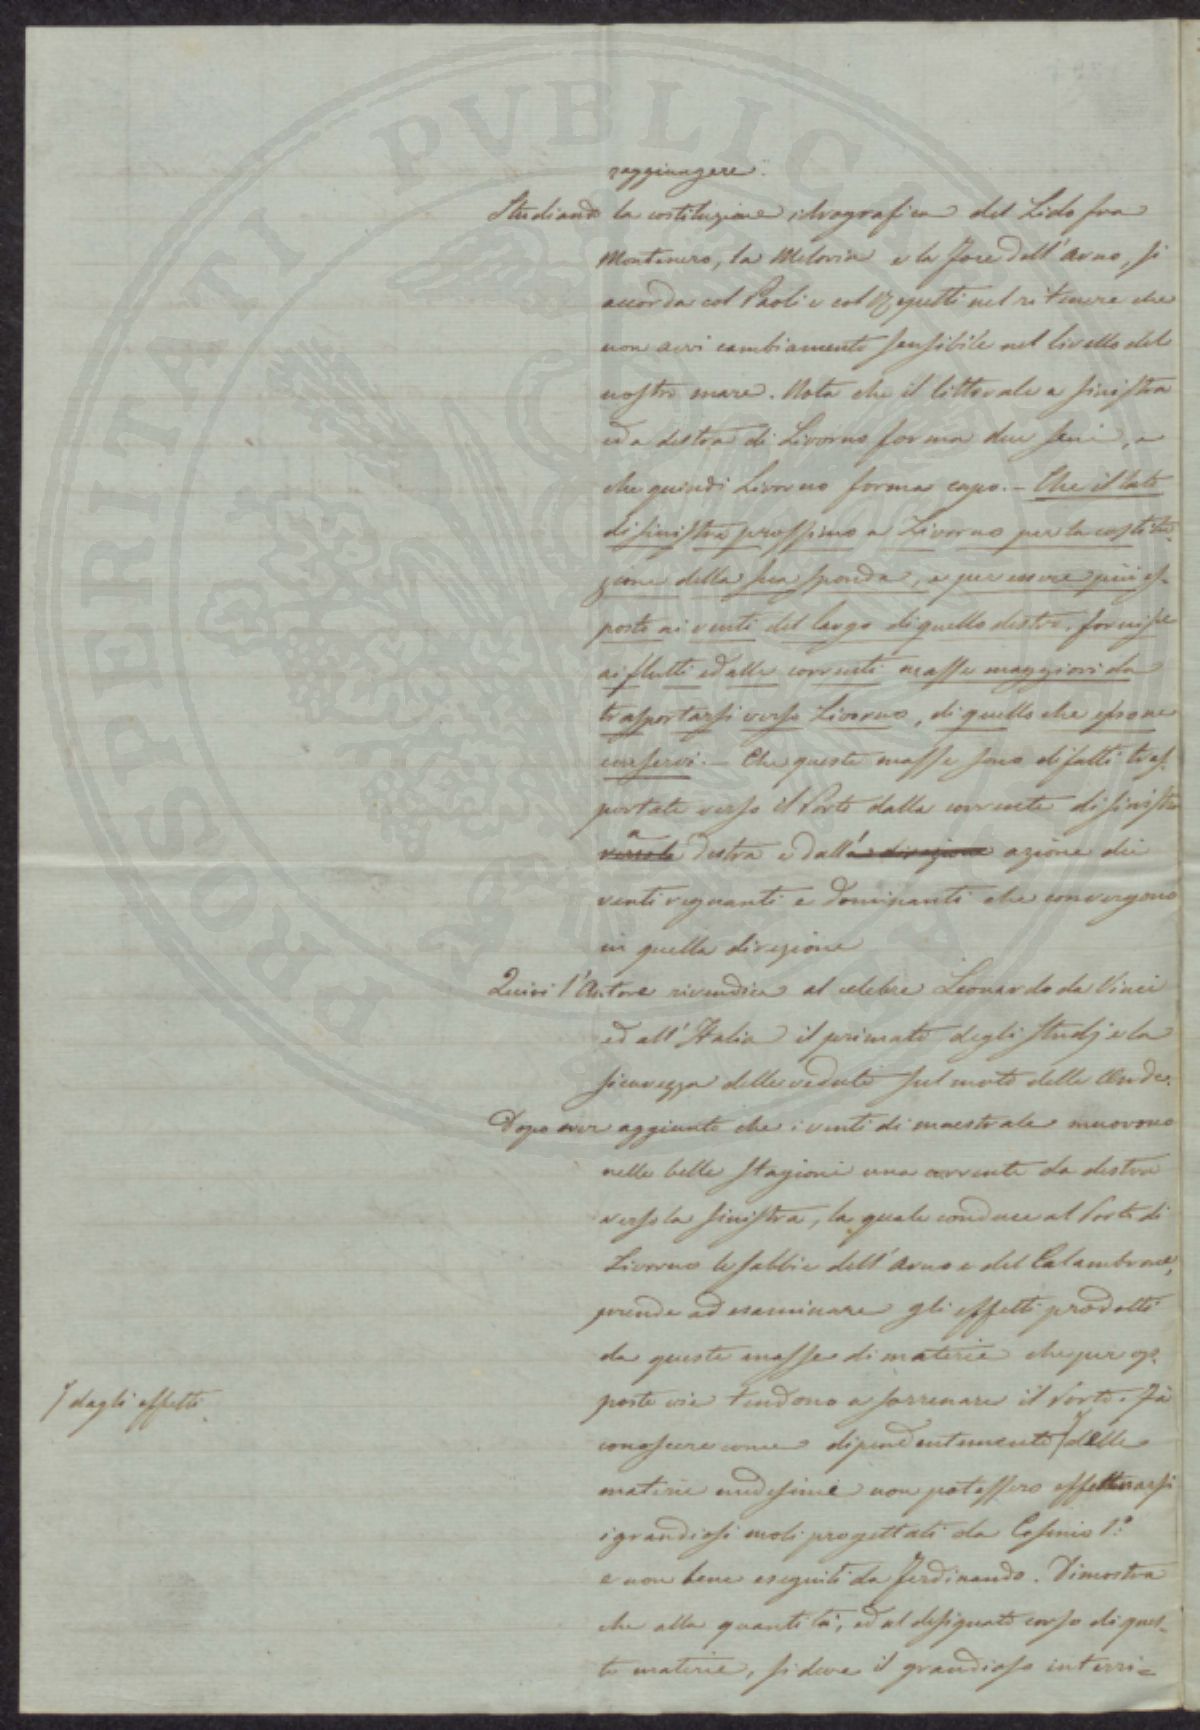 raggiungere.
Studiando la costituzione idrografica del Lido fra
Montenero, la Meloria e la Foce dell'Arno, si
accorda col Paoli e col Repetti nel ritenere che
non avvi cambiamento sensibile nel livello del
nostro mare. Nota che il littorale a sinistra
ed a destra di Livorno forma due seni, e
che quindi Livorno forma capo. - Che il lato
di sinistra prossimo a Livorno per la costitu-
zione della sua sponda, e per essere più es-
posto ai venti del largo di quello destro, fornisce
ai flutti ed alle correnti masse maggiori da
trasportarsi verso Livorno, di quello che esso ne
conservi. - Che queste masse sono difatti tras-
portate verso il Porto dalla corrente di sinistra
verso la a destra e dall'a direzione azione dei
venti regnanti e dominanti che convergono
in quella direzione
Quivi l'Autore rivendica al celebre Leonardo da Vinci
ed all'Italia il primato degli studj e la
sicurezza delle vedute sul moto delle Onde.
Dopo aver aggiunto che i venti di maestrale muovono
nelle belle stagioni una corrente da destra
verso la sinistra, la quale conduce al Porto di
Livorno le sabbie dell'Arno e del Calambrone,
prende ad esaminare gli effetti prodotti
da queste masse di materie che per op-
poste vie tendono a sorrenare il Porto. Fà
conoscere come dipendentemente delle
dagli effetti
materie medesime non potessero effettuarsi
i grandiosi moli progettati da Cosimo 1.º
e non bene eseguiti da Ferdinando. Dimostra
che alla quantità, ed al designato corso di ques-
te materie, si deve il grandioso interri=